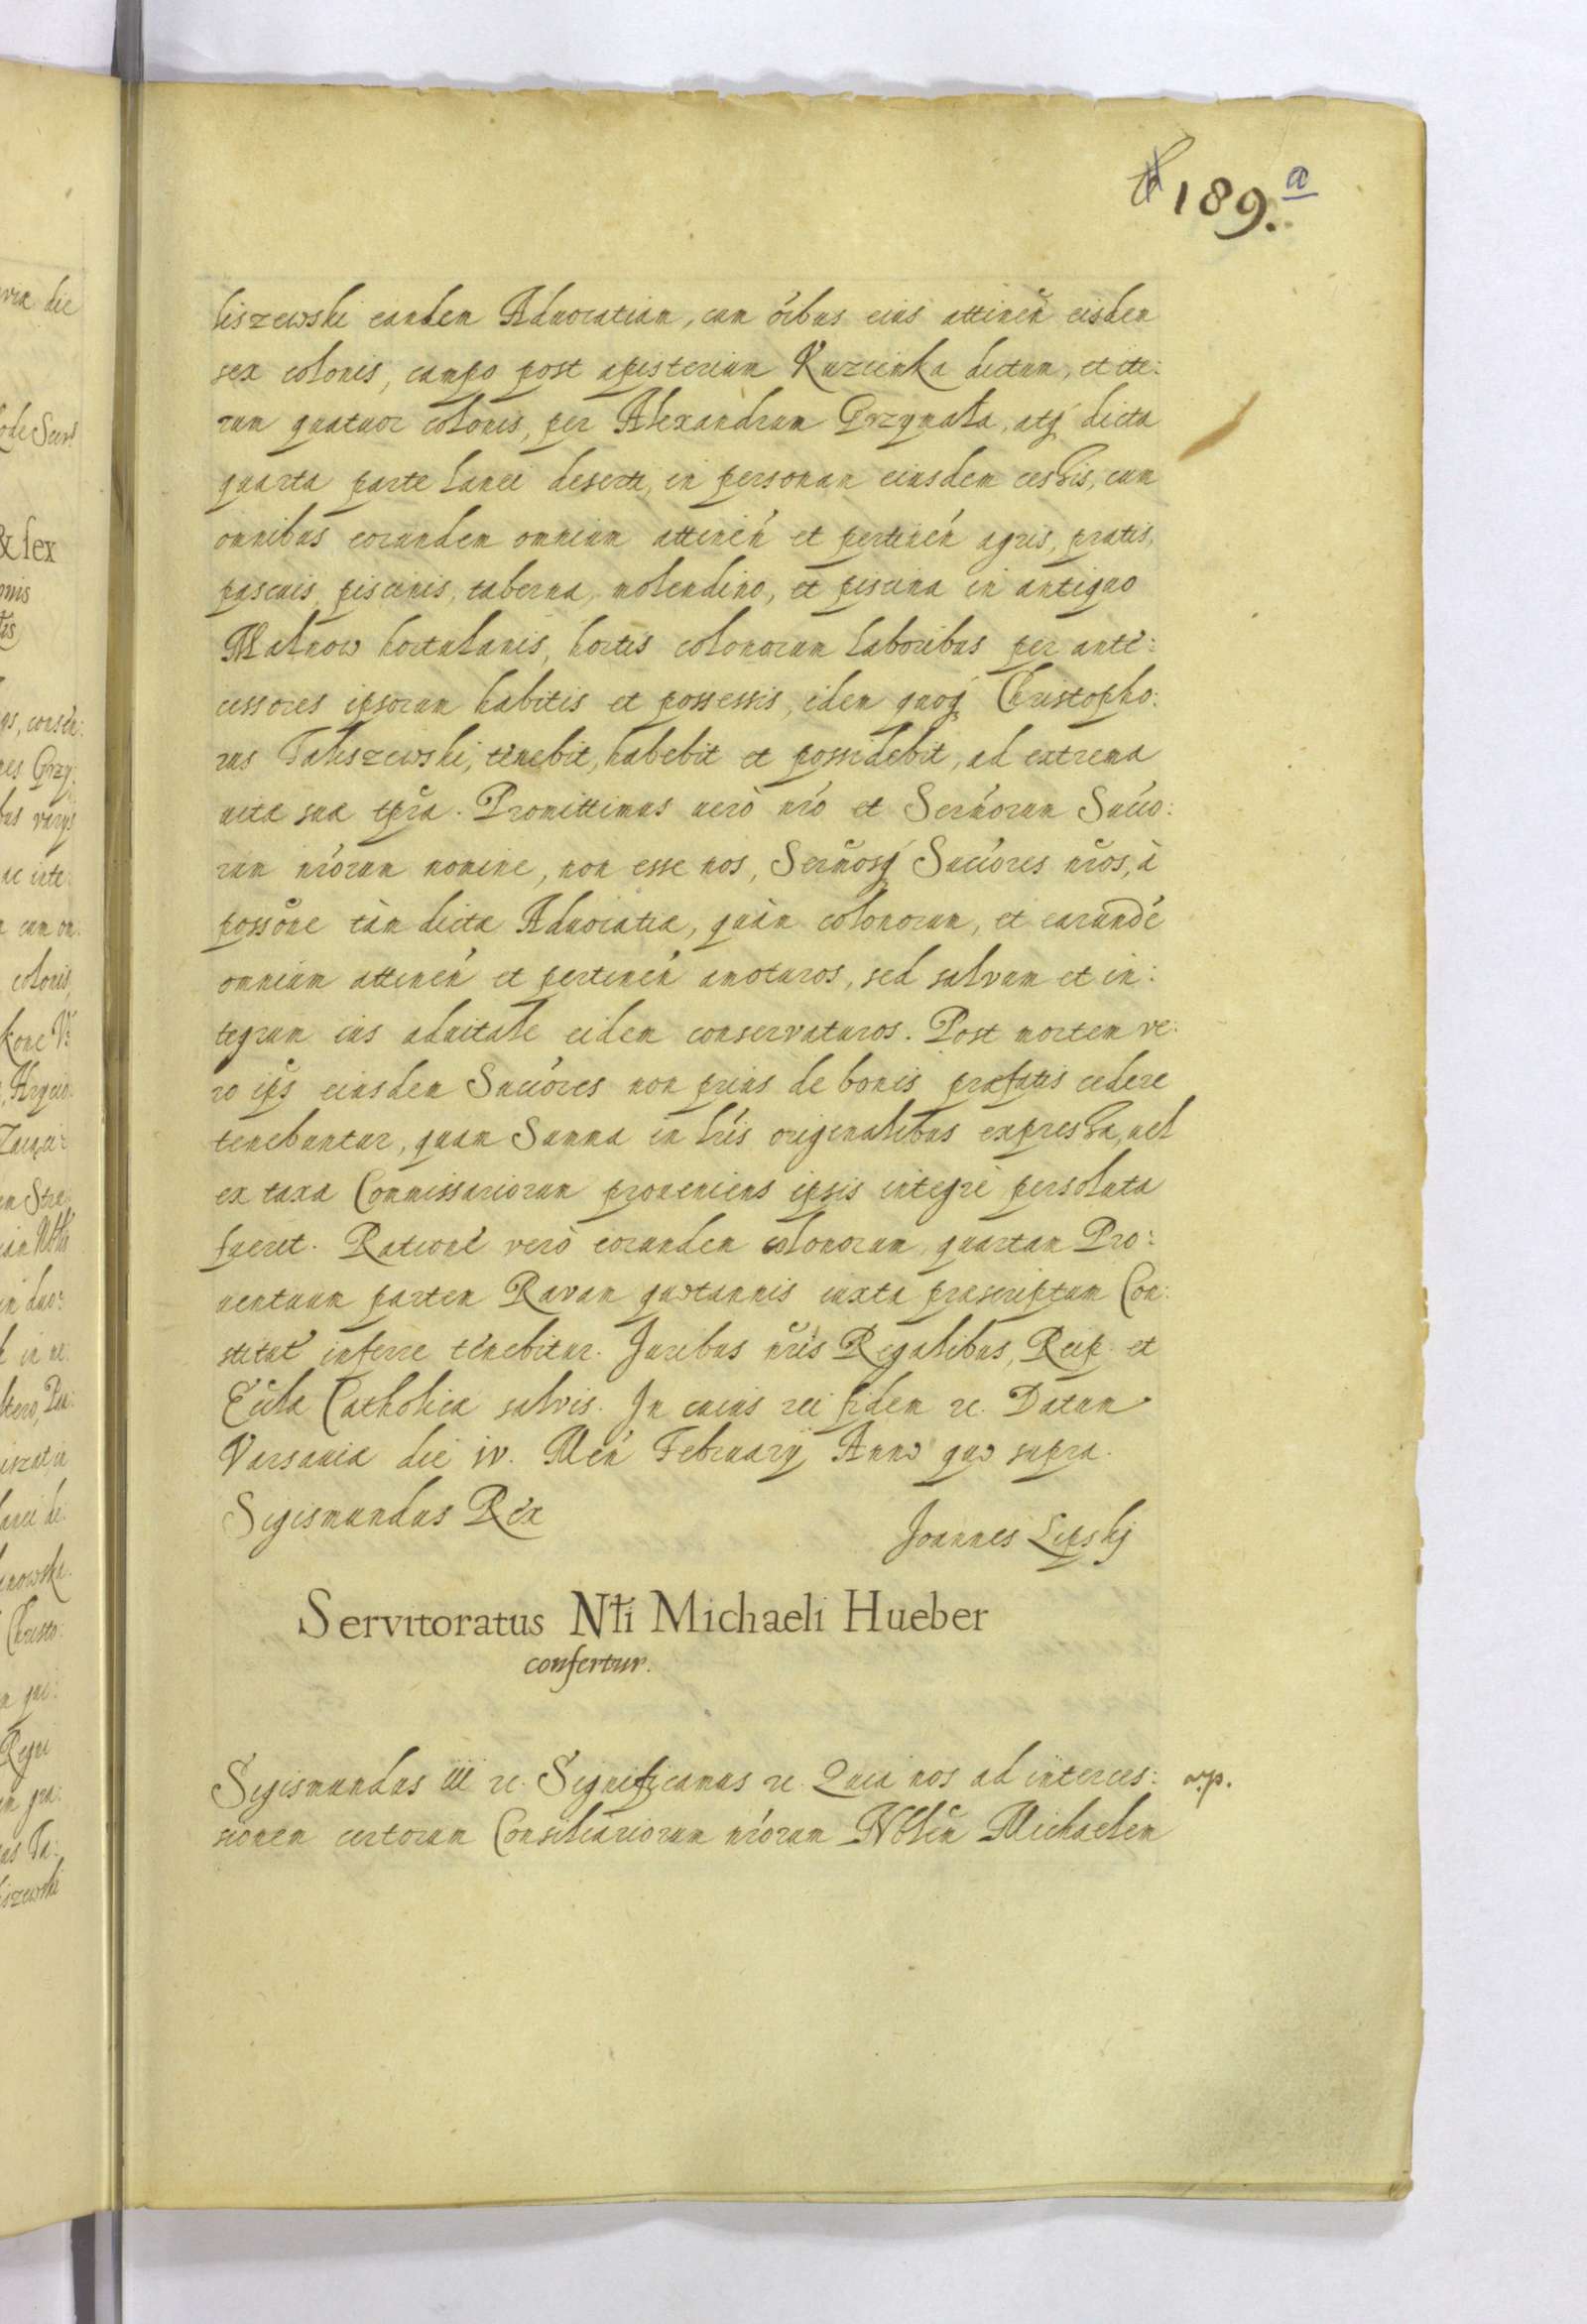 189.a
liszewski eandem Aduocatiam, cum oibus eius attinen eisdem
sex colonis, campo post apisterium Kuzcinka dictum, et ite:
rum quatuor colonis, per Alexandrum Grzymala, atq dicta
quarta parte lanei deserti, in personam eiusdem cessis, cum
omnibus eorundem omnium attinen et pertinen agris, pratis,
pascuis, piscinis, taberna, molendino, et piscina in antiquo
Malnow hortulanis, hortis colonorum laboribus per ante:
cessores ipsorum habitis et possessis, idem quoq Christopho:
rus Taliszewski, tenebit, habebit et possidebit, ad extrema
uitæ suæ tpra. Promittimus uerò nro et Sermorum Succo:
rum nrorum nomine, non esse nos, Sermosq Succores nros, à
possone tàm dictæ Aduocatiæ, quàm colonorum, et earundē
omnium attinen et pertinen amoturos, sed salvum et in:
tegrum ius aduitale eidem conservaturos. Post mortem ve:
ro ips eiusdem Succores non prius de bonis præfatis cedere
tenebuntur, quam Summa in lris originalibus expressa, uel
ex taxa Commissariorum proueniens ipsis integrè persoluta
fuerit. Ratione verò eorundem colonorum quartam Pro:
uentuum partem Ravam quotannis iuxta præscriptum Con:
stitut inferre tenebitur. Juribus nris Regalibus, Reip. et
Ecclæ Catholicæ salvis. In cuius rei fidem rc. Datum
Varsauiæ die iv. Men February Anno quo supra.
Sigismundus Rex
Joannes Lipskj
Servitoratus Nbli Michaeli Hueber
confertur.
Sigismundus III rc. Significamus rc. Quia nos ad interces: rp.
sionem certorum Consiliariorum nrorum Nblem Michaelem